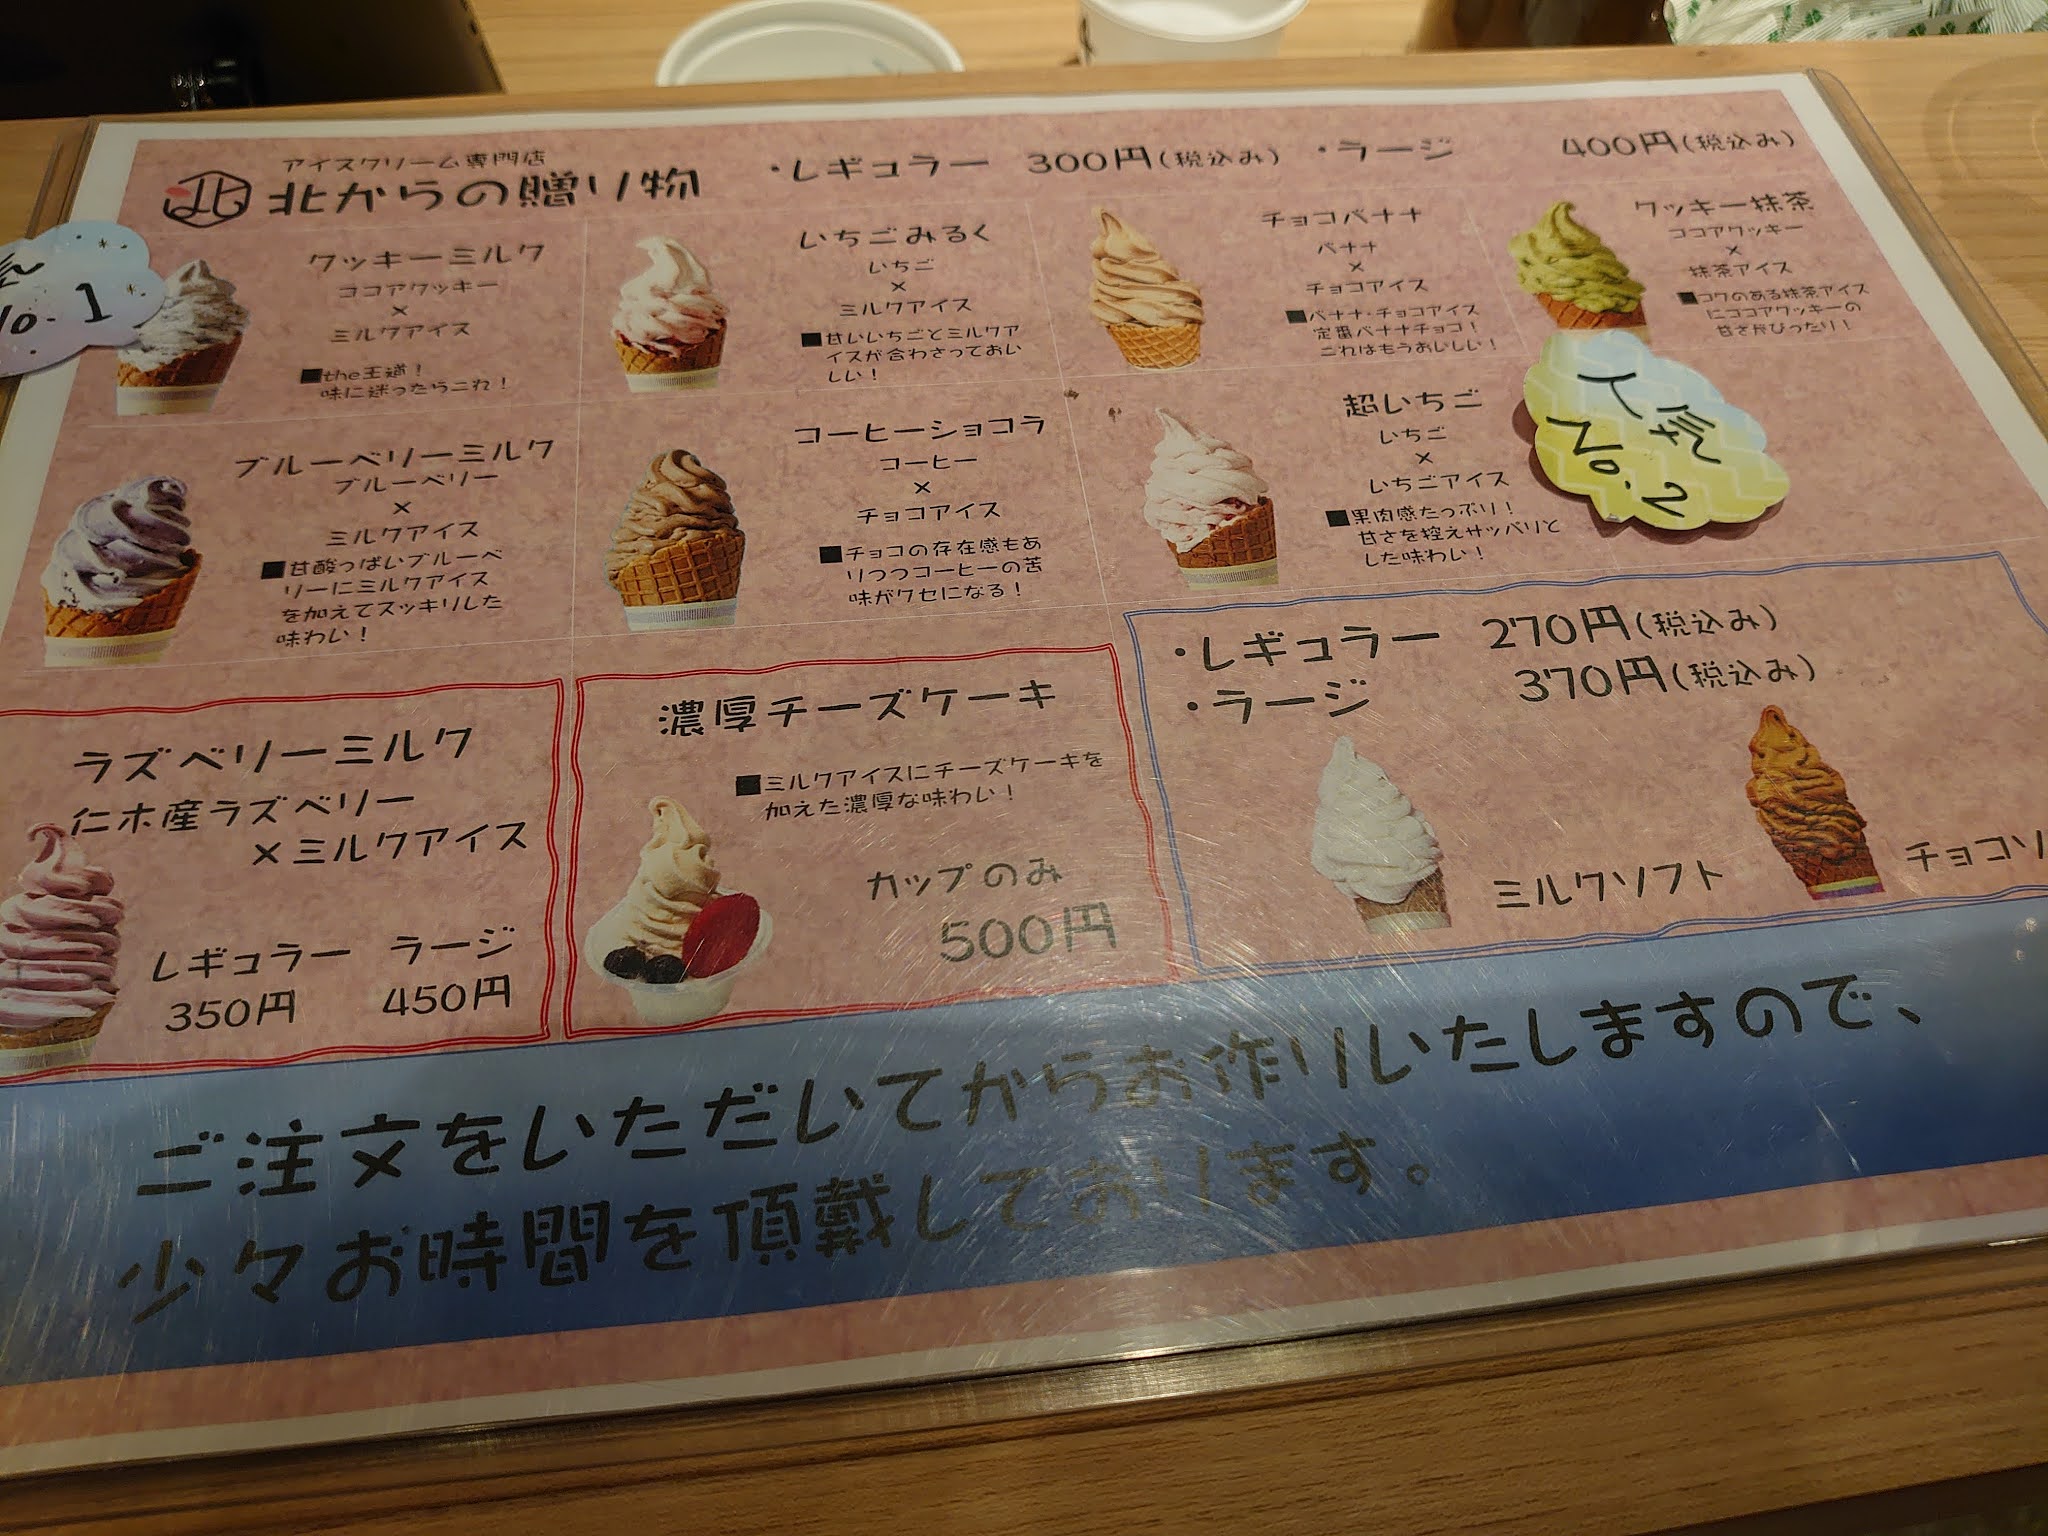 アイスクリーム専門店
北 北からの贈り物
・レギュラー 300円(税込み) ・ラージ 400円(税込み)
No.1
クッキーミルク
ココアクッキー
×
ミルクアイス
■the王道!
味に迷ったらこれ!
いちごみるく
いちご
×
ミルクアイス
■甘いいちごとミルクア
イスが合わさっておい
しい!
チョコバナナ
バナナ
×
チョコアイス
■バナナ・チョコアイス
定番バナナチョコ!
これはもうおいしい!
クッキー抹茶
ココアクッキー
×
抹茶アイス
■コクのある抹茶アイス
にココアクッキーの
甘さがぴったり!
人気
No.2
ブルーベリーミルク
ブルーベリー
×
ミルクアイス
■甘酸っぱいブルーベ
リーにミルクアイス
を加えてスッキリした
味わい!
コーヒーショコラ
コーヒー
×
チョコアイス
■チョコの存在感もあ
りつつコーヒーの苦
味がクセになる!
超いちご
いちご
×
いちごアイス
■果肉感たっぷり!
甘さを控えサッパリと
した味わい!
ラズベリーミルク
仁木産ラズベリー
×ミルクアイス
レギュラー ラージ
350円 450円
濃厚チーズケーキ
■ミルクアイスにチーズケーキを
加えた濃厚な味わい!
カップのみ
500円
・レギュラー 270円(税込み)
・ラージ 370円(税込み)
ミルクソフト
チョコソ
ご注文をいただいてからお作りいたしますので、
少々お時間を頂戴しております。